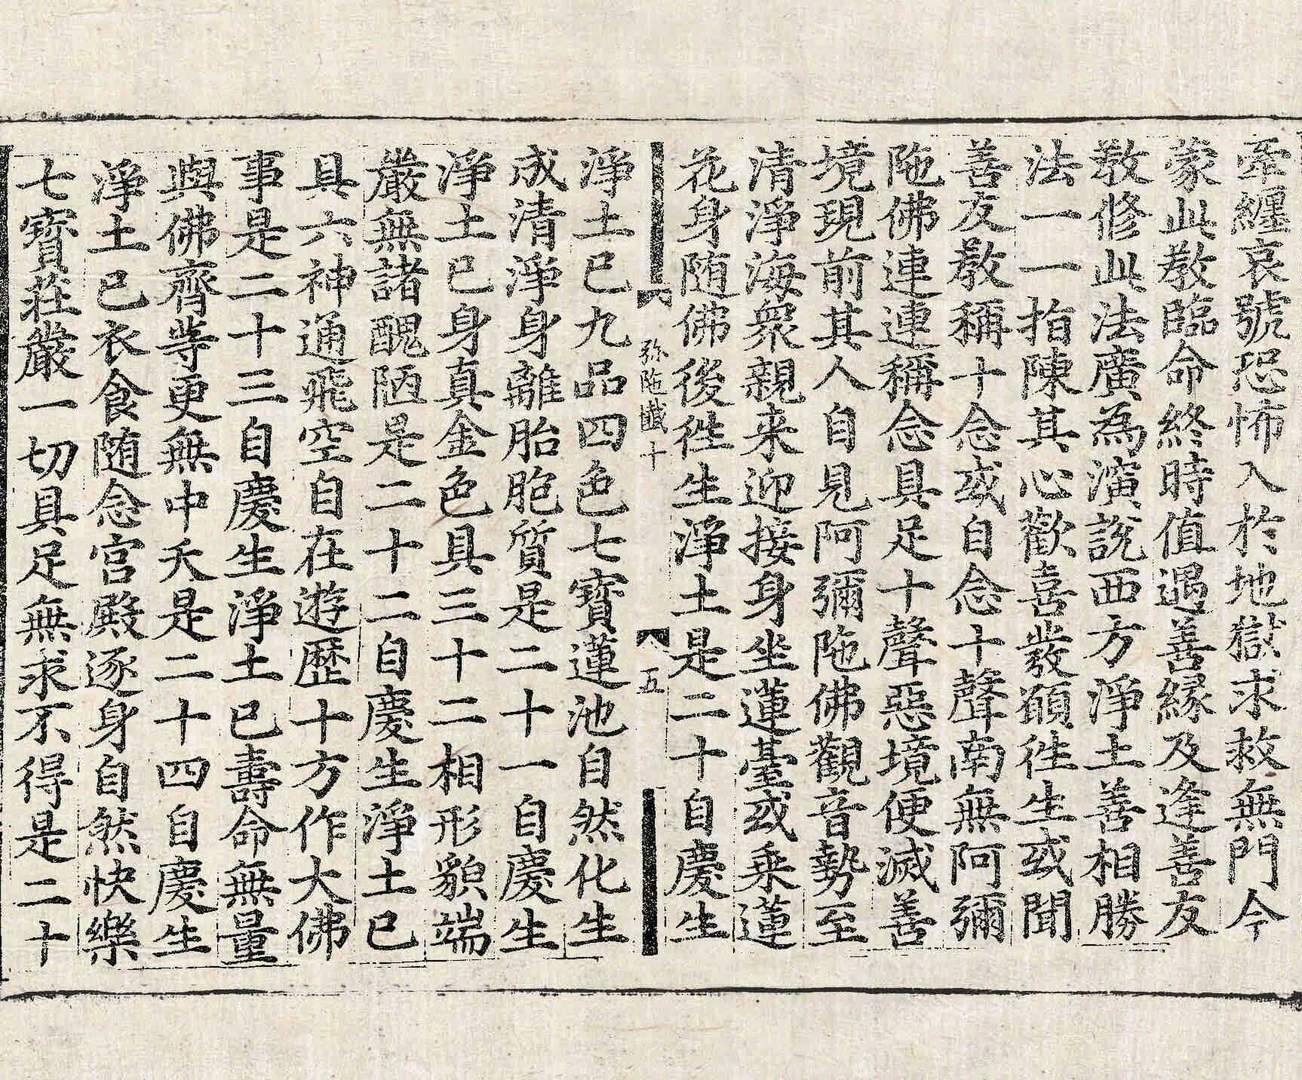 牽纏哀號恐怖入於地獄求救無門今
蒙此教臨命終時值遇善縁及逢善友
教修此法廣為演說西方淨土善相勝
法一一指陳其心歡喜發願徃生或聞
善友教稱十念或自念十聲南無阿彌
陁佛連連稱念具足十聲惡境便滅善
境現前其人自見阿彌陁佛觀音勢至
清淨海衆親来迎接身坐蓮臺或乗蓮
花身随佛後徃生淨土是二十自慶生
弥陁懺十
五
淨土已九品四色七寳蓮池自然化生
成清淨身離胎胞質是二十一自慶生
淨土已身真金色具三十二相形貌端
嚴無諸醜陋是二十二自慶生淨土已
具六神通飛空自在遊歷十方作大佛
事是二十三自慶生淨土已壽命無量
與佛齊等更無中夭是二十四自慶生
淨土已衣食随念宫殿逐身自然快樂
七寳莊嚴一切具足無求不得是二十